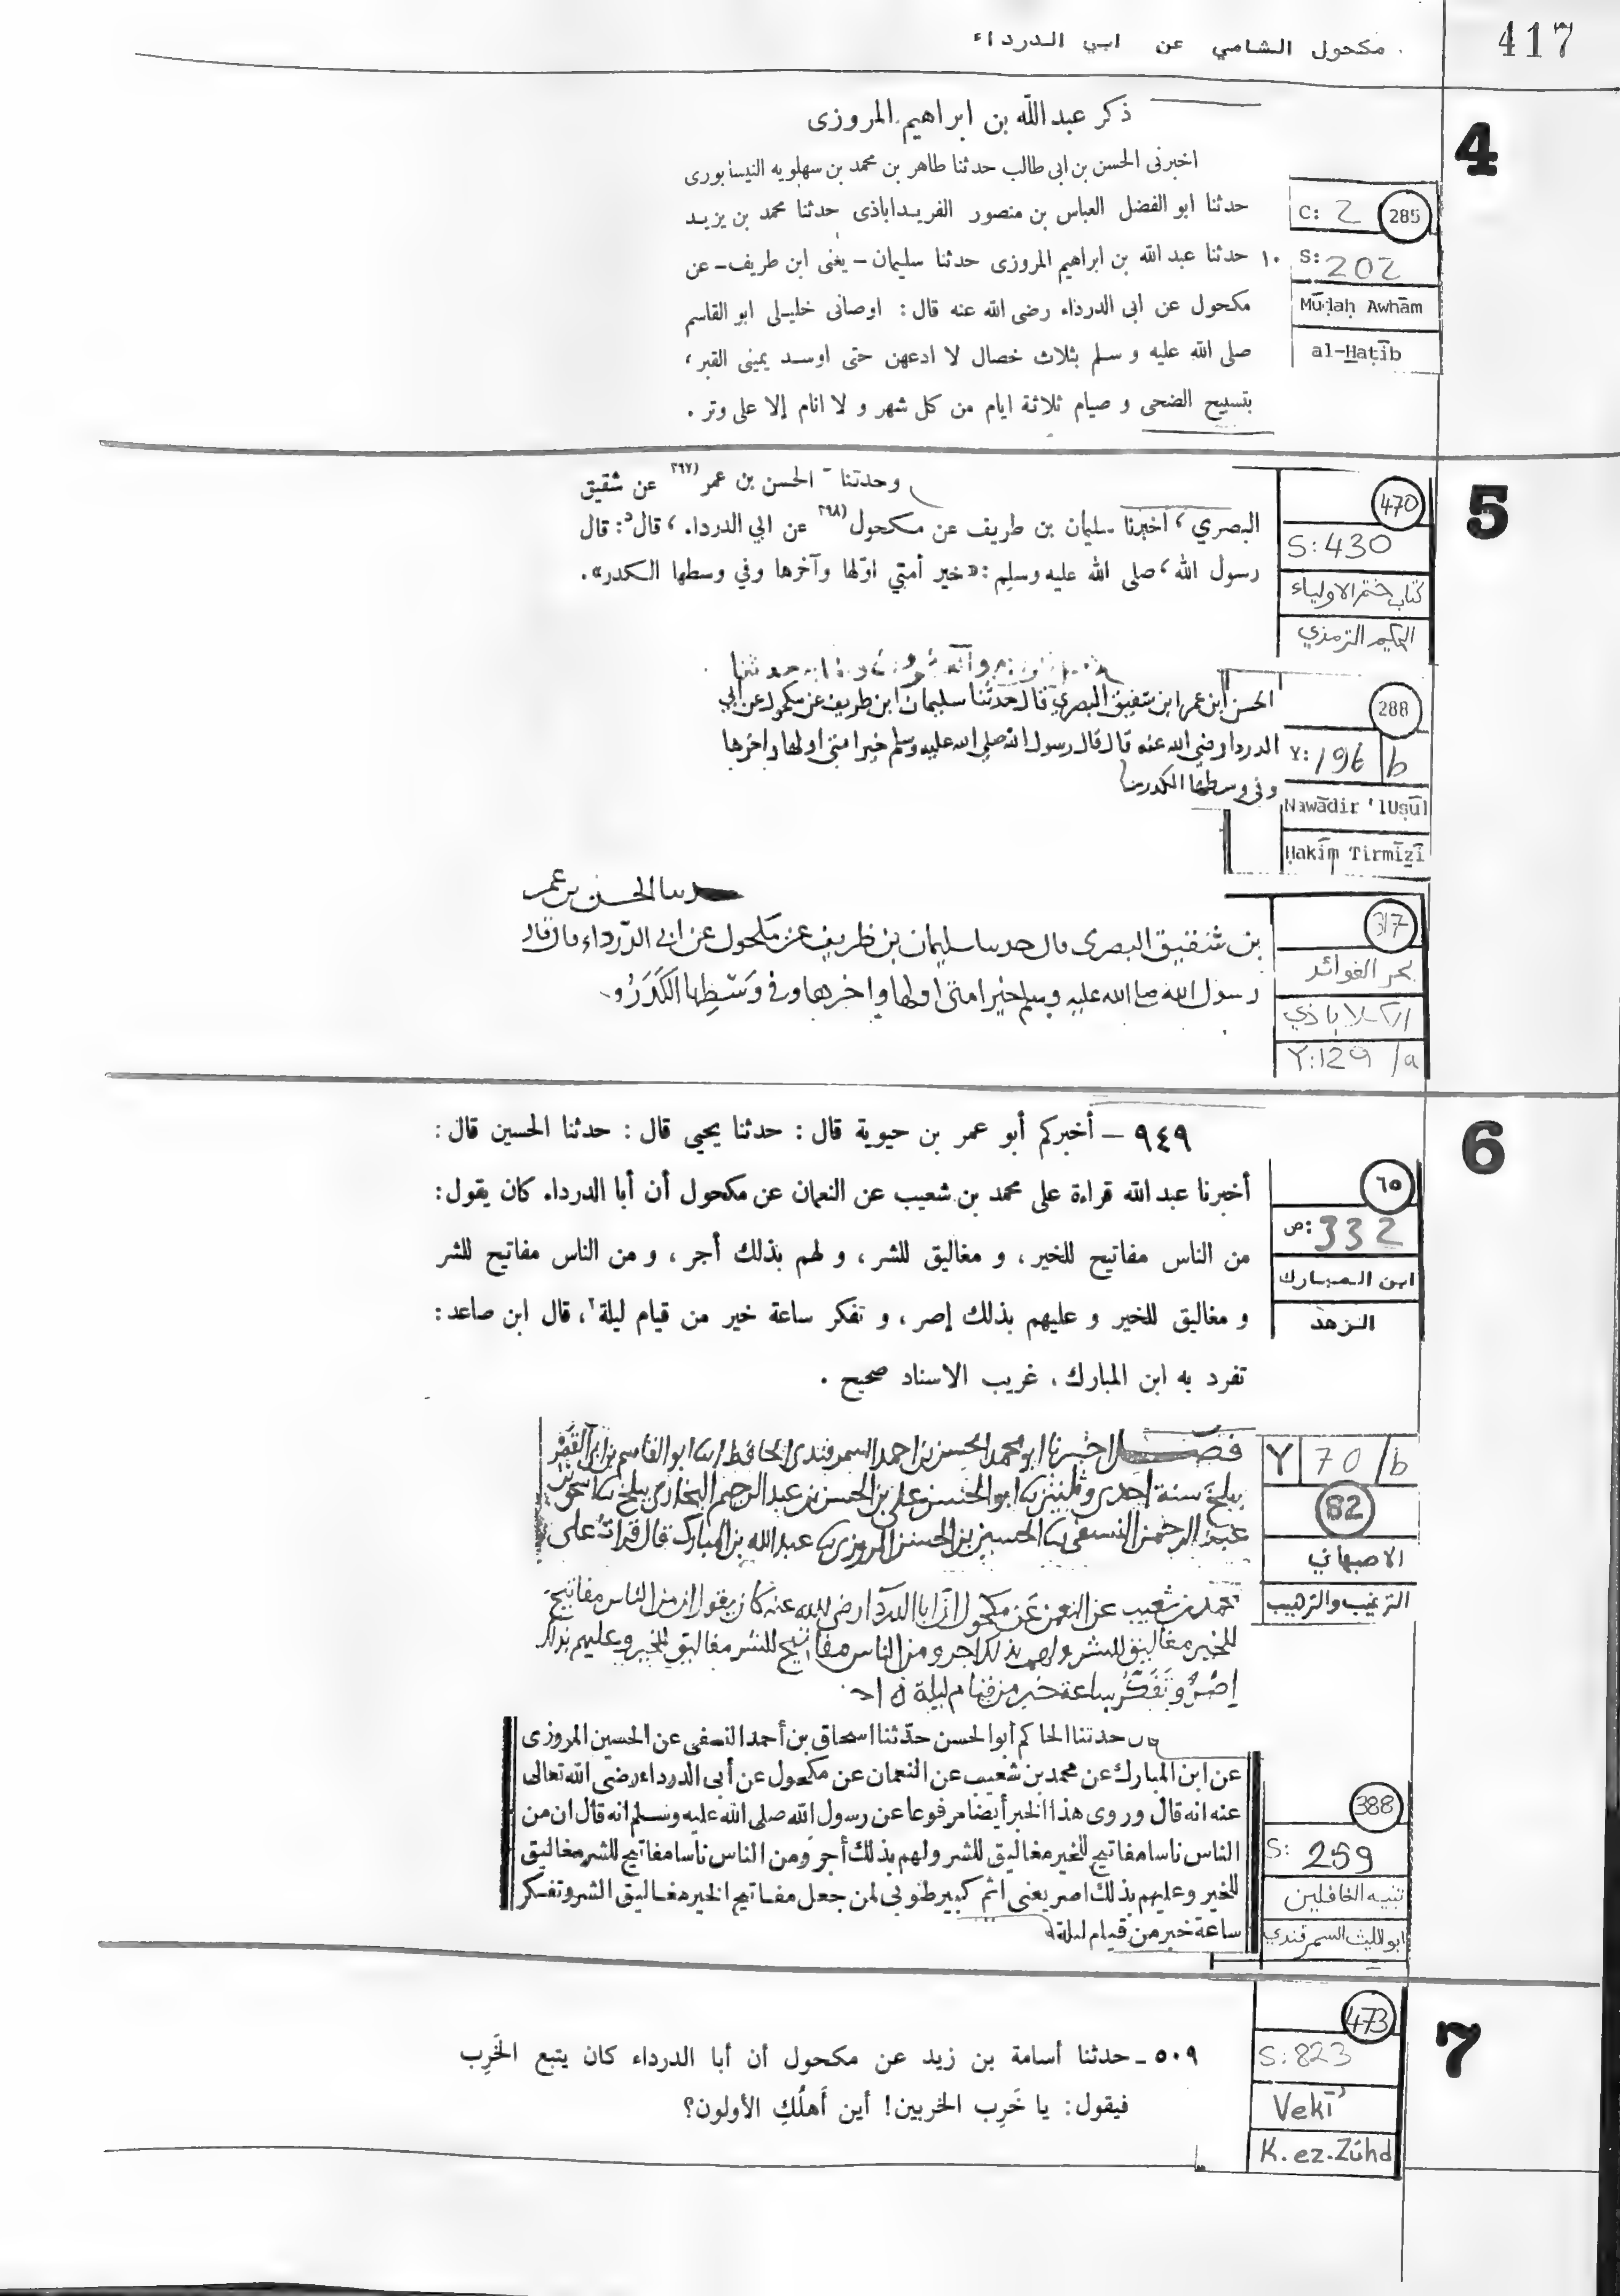 417
مكحول الشامي عن ابي الدرداء
4
ذكر عبد الله بن ابراهيم المروزى
اخبرنى الحسن بن ابى طالب حدثنا طاهر بن محمد بن سهلويه النيسابورى
حدثنا ابو الفضل العباس بن منصور الفريداباذى حدثنا محمد بن يزيد
١٠ حدثنا عبد الله بن ابراهيم المروزى حدثنا سليمان – يعنى ابن طريف – عن
مكحول عن ابى الدرداء رضى الله عنه قال : اوصانى خليلى ابو القاسم
صلى الله عليه و سلم بثلاث خصال لا ادعهن حتى اوسد يمينى القبر ،
بتسبيح الضحى و صيام ثلاثة ايام من كل شهر و لا انام إلا على وتر .
285
C: 2
S: 202
Mūḍaḥ Awhām
al-Ḫaṭīb
5
وحدثنا الحسن بن عمر (٢٩٧ عن شقيق
البصري ، اخبرنا سليمان بن طريف عن مكحول (٢٩٨ عن ابي الدرداء ، قال : قال
رسول الله ، صلى الله عليه وسلم : «خير أمتي اوّلها وآخرها وفي وسطها الكدر» .
470
S: 430
كتاب ختم الاولياء
الحكيم الترمذي
حدثنا
الحسن ابن عمر ابن شقيق البصري قال حدثنا سليمان ابن طريف عن مكحول عن ابي
الدردا رضي الله عنه قال قال رسول الله صلي الله عليه وسلم خير امتي اولها واخرها
وفي وسطها الكدر
288
Y: 196 b
Nawādir 'lUṣūl
Ḥakīm Tirmiẕī
حدثنا الحسن بن عمر
بن شقيق البصرى قال حدثنا سليمان بن طريف عن مكحول عن ابى الدّرداء قال قال
رسول الله صلى الله عليه وسلم خير امتى اولها واخرها وفى وَسَطِها الكَدَرُ
317
بحر الفوائد
الكلاباذي
Y: 129 /a
6
٩٤٩ – أخبركم أبو عمر بن حيوية قال : حدثنا يحيى قال : حدثنا الحسين قال :
أخبرنا عبد الله قراءة على محمد بن شعيب عن النعمان عن مكحول أن أبا الدرداء كان يقول :
من الناس مفاتيح للخير ، و مغاليق للشر ، و لهم بذلك أجر ، و من الناس مفاتيح للشر
و مغاليق للخير و عليهم بذلك إصر ، و تفكر ساعة خير من قيام ليلة ٢ ، قال ابن صاعد :
تفرد به ابن المبارك ، غريب الاسناد صحيح .
٦٥
ص: 332
ابن المبارك
الزهد
فصل اخبرنا ابو محمد الحسن بن احمد السمرقندي الحافظ ابو القاسم بن
ببلخ سنة احدى وثلثين ابو الحسن علي بن الحسن بن عبد الرحيم البخاري ببلخ
عبد الرحمن النسفي الحسين بن الحسن المروزي عبد الله بن المبارك قال قرات على
محمد بن شعيب عن النعمن عن مكحول ان ابا الدردا رضي الله عنه كان يقول ان من الناس مفاتيح
للخير مغاليق للشر ولهم بذلك اجر ومن الناس مفاتيح للشر مغاليق للخير وعليهم بذلك
إصْرٌ وتَفَكّرُ ساعة خير من قيام ليلة
Y 70 /b
82
الاصبهاني
الترغيب والترهيب
حدثنا الحاكم أبو الحسن حدّثنا اسحاق بن أحمد النسفى عن الحسين المروزى
عن ابن المبارك عن محمد بن شعيب عن النعمان عن مكحول عن أبى الدرداء رضى الله تعالى
عنه انه قال وروى هذا الخبر أيضا مرفوعا عن رسول الله صلى الله عليه وسلم انه قال ان من
الناس ناسا مفاتيح للخير مغاليق للشر ولهم بذلك أجر ومن الناس ناسا مفاتيح للشر مغاليق
للخير وعليهم بذلك اصر يعنى اثم كبير طوبى لمن جعل مفاتيح الخير مغاليق الشر وتفكر
ساعة خير من قيام ليلة
388
S: 259
تنبيه الغافلين
ابو الليث السمرقندي
7
٥٠٩ ـ حدثنا أسامة بن زيد عن مكحول أن أبا الدرداء كان يتبع الخَرِب
فيقول : يا خَرِب الخربين! أين أَهلُكِ الأولون؟
473
S: 823
Vekī'
K. ez. Zühd